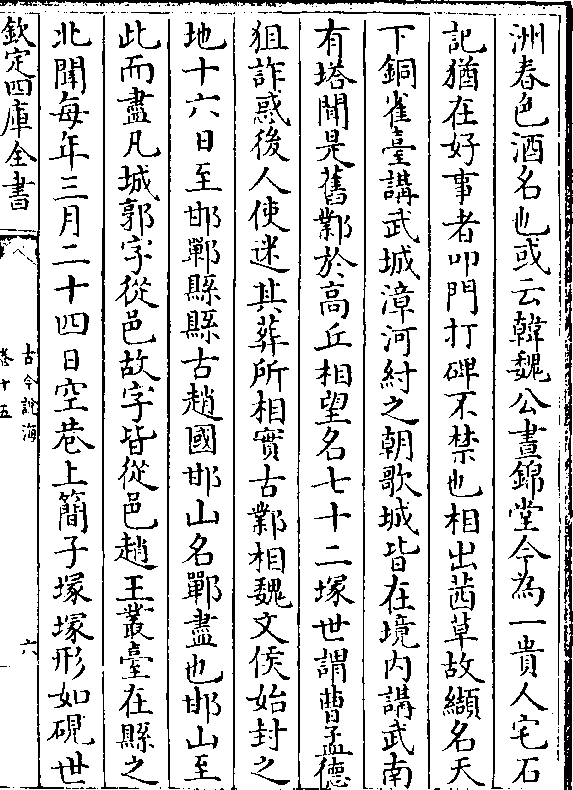 洲春色酒名也或云韓魏公晝錦堂今為一貴人宅石
記猶在好事者叩門打碑不禁也相出茜草故纈名天
下銅雀臺講武城漳河紂之朝歌城皆在境内講武南
有塔聞是舊鄴於高丘相望名七十二塚世謂曹孟德
狙詐惑後人使迷其葬所相實古鄴相魏文侯始封之
地十六日至邯鄲縣縣古趙國邯山名鄲盡也邯山至
此而盡凡城郭字從邑故字皆從邑趙王叢臺在縣之
北聞每年三月二十四日空巷上簡子塚塚形如硯世
欽定四庫全書
古今說海
卷十五
六